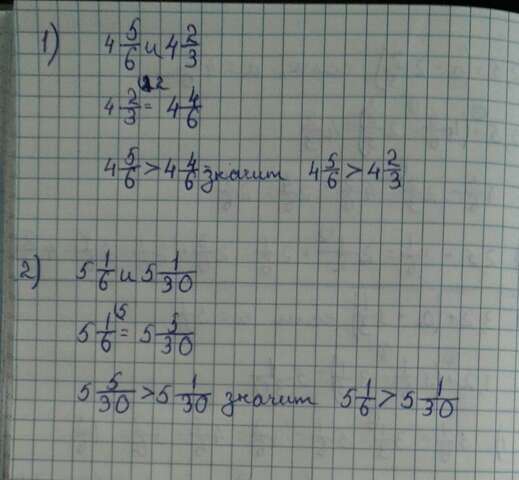 1) 4 5/6 и 4 2/3
4 2/3 (2 = 4 4/6
4 5/6 > 4 4/6 значит 4 5/6 > 4 2/3
2) 5 1/6 и 5 1/30
5 1/6 (5 = 5 5/30
5 5/30 > 5 1/30 значит 5 1/6 > 5 1/30